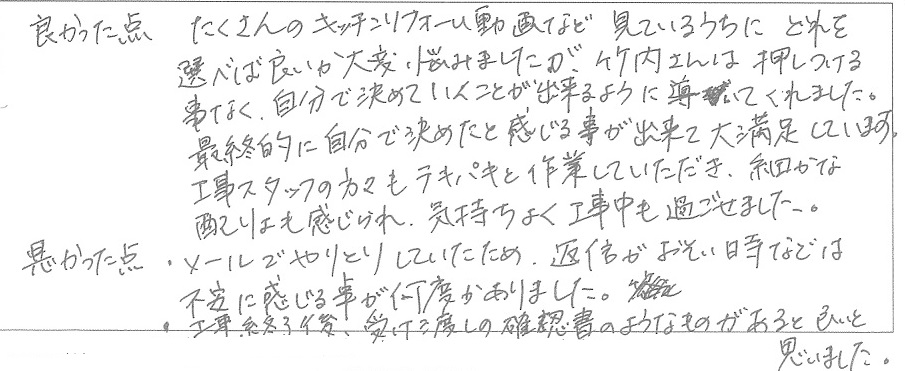 良かった点 たくさんのキッチンリフォーム動画など見ているうちにどれを
選べば良いか大変悩みましたが、竹内さんは押しつける
事なく、自分で決めていくことが出来るように導いてくれました。
最終的に自分で決めたと感じる事が出来て大満足しています。
工事スタッフの方々もテキパキと作業していただき、細かな
配りょも感じられ、気持ちよく工事中も過ごせました。
悪かった点 ・メールでやりとりしていたため、返信がおそい時などは
不安に感じる事が何度かありました。
・工事終了後、受け渡しの確認書のようなものがあると良いと
思いました。